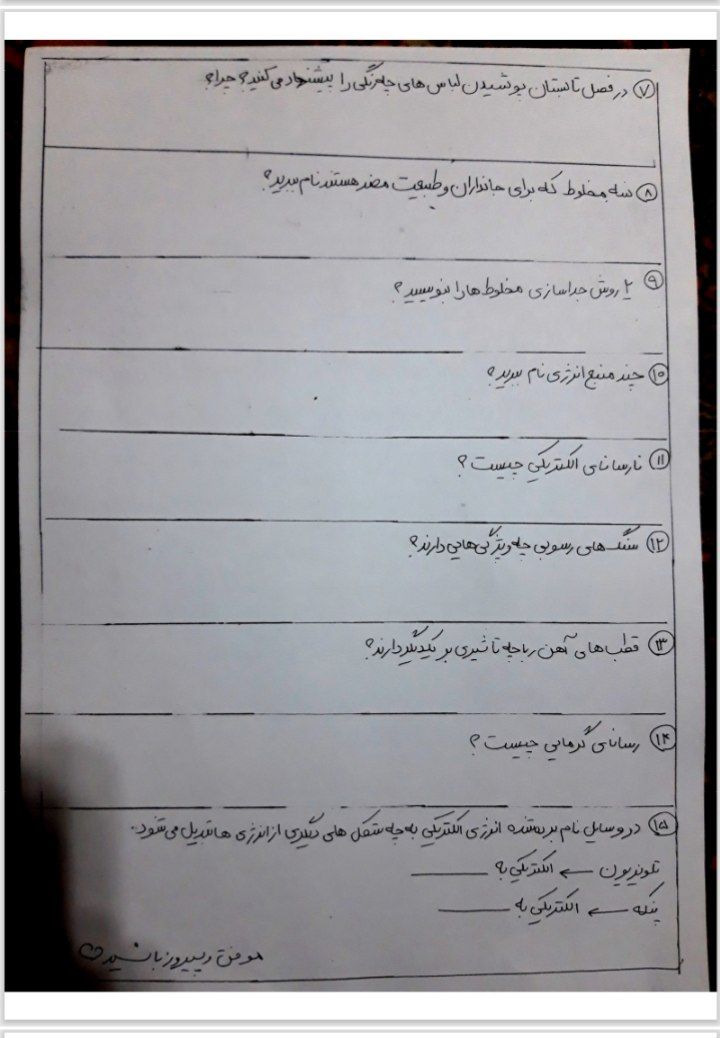 ۷ در فصل تابستان پوشیدن لباس های چه رنگی را پیشنهاد می کنید؟ چرا؟
۸ سه مخلوط که برای جانداران و طبیعت مضر هستند نام ببرید؟
۹ ۲ روش جداسازی مخلوط ها را بنویسید؟
۱۰ چند منبع انرژی نام ببرید؟
۱۱ نارسانای الکتریکی چیست؟
۱۲ سنگ های رسوبی چه ویژگی هایی دارند؟
۱۳ قطب های آهن ربا چه تاثیری بر یکدیگر دارند؟
۱۴ رسانای گرمایی چیست؟
۱۵ در وسایل نام برده شده انرژی الکتریکی به چه شکل های دیگری از انرژی ها تبدیل می شود.
تلویزیون ← الکتریکی به ______
پنکه ← الکتریکی به ______
موفق و پیروز باشید